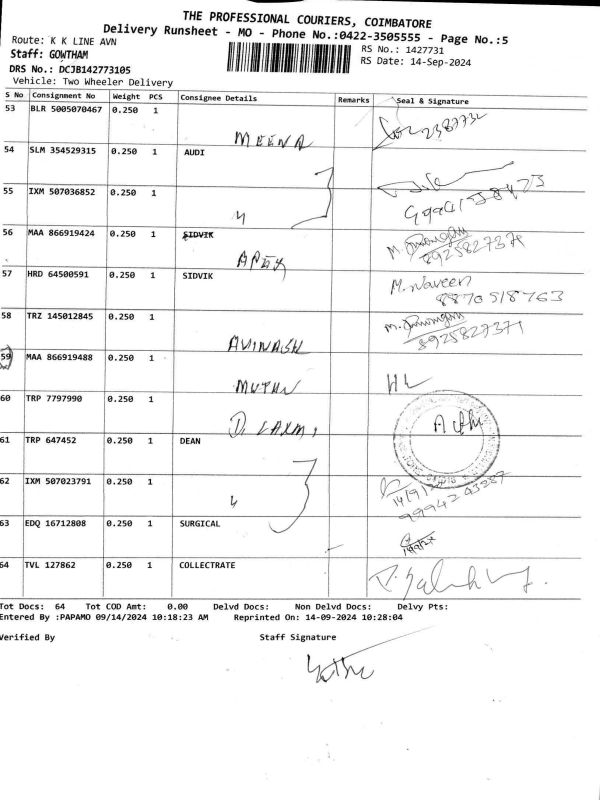 THE PROFESSIONAL COURIERS, COIMBATORE
Delivery Runsheet - MO - Phone No.:0422-3505555 - Page No.:5
Route: K K LINE AVN
RS No.: 1427731
Staff: GOWTHAM
RS Date: 14-Sep-2024
DRS No.: DCJB142773105
Vehicle: Two Wheeler Delivery
S No Consignment No Weight PCS Consignee Details Remarks Seal & Signature
53 BLR 5005070467 0.250 1 MEENA 2387732
54 SLM 354529315 0.250 1 AUDI
55 IXM 507036852 0.250 1 "
56 MAA 866919424 0.250 1 SIDVIK 8925827371
57 HRD 64500591 0.250 1 SIDVIK M. Naveen
8870518763
58 TRZ 145012845 0.250 1 AVINASH 8925827371
59 MAA 866919488 0.250 1 MUTHU
60 TRP 7797990 0.250 1 D. LAXMI
61 TRP 647452 0.250 1 DEAN
62 IXM 507023791 0.250 1 " 9994203287
63 EDQ 16712808 0.250 1 SURGICAL
64 TVL 127862 0.250 1 COLLECTRATE
Tot Docs: 64 Tot COD Amt: 0.00 Delvd Docs: Non Delvd Docs: Delvy Pts:
Entered By :PAPAMO 09/14/2024 10:18:23 AM Reprinted On: 14-09-2024 10:28:04
Verified By Staff Signature